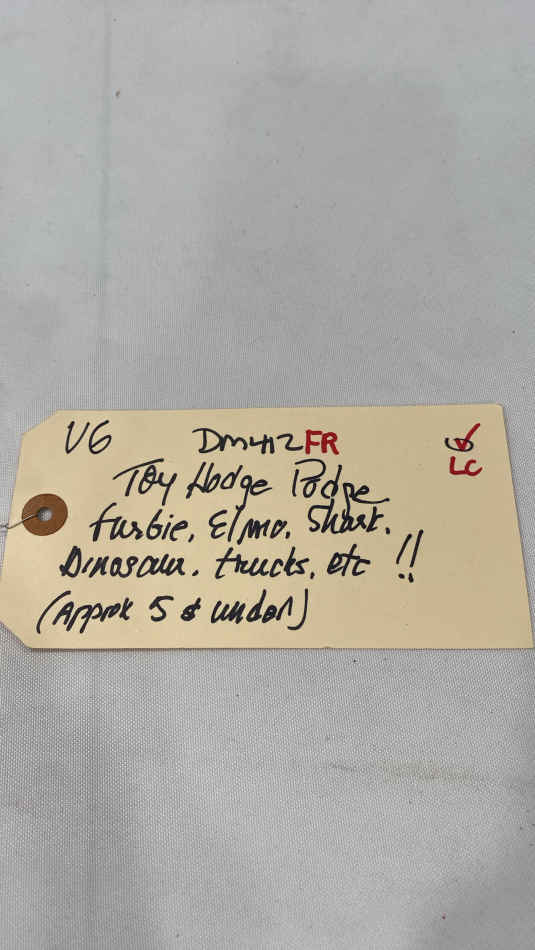 V6 DM412FR
LC
Toy Hodge Podge
furbie, Elmo, Shark,
Dinosaur, trucks, etc !!
(Approx 5 & under)